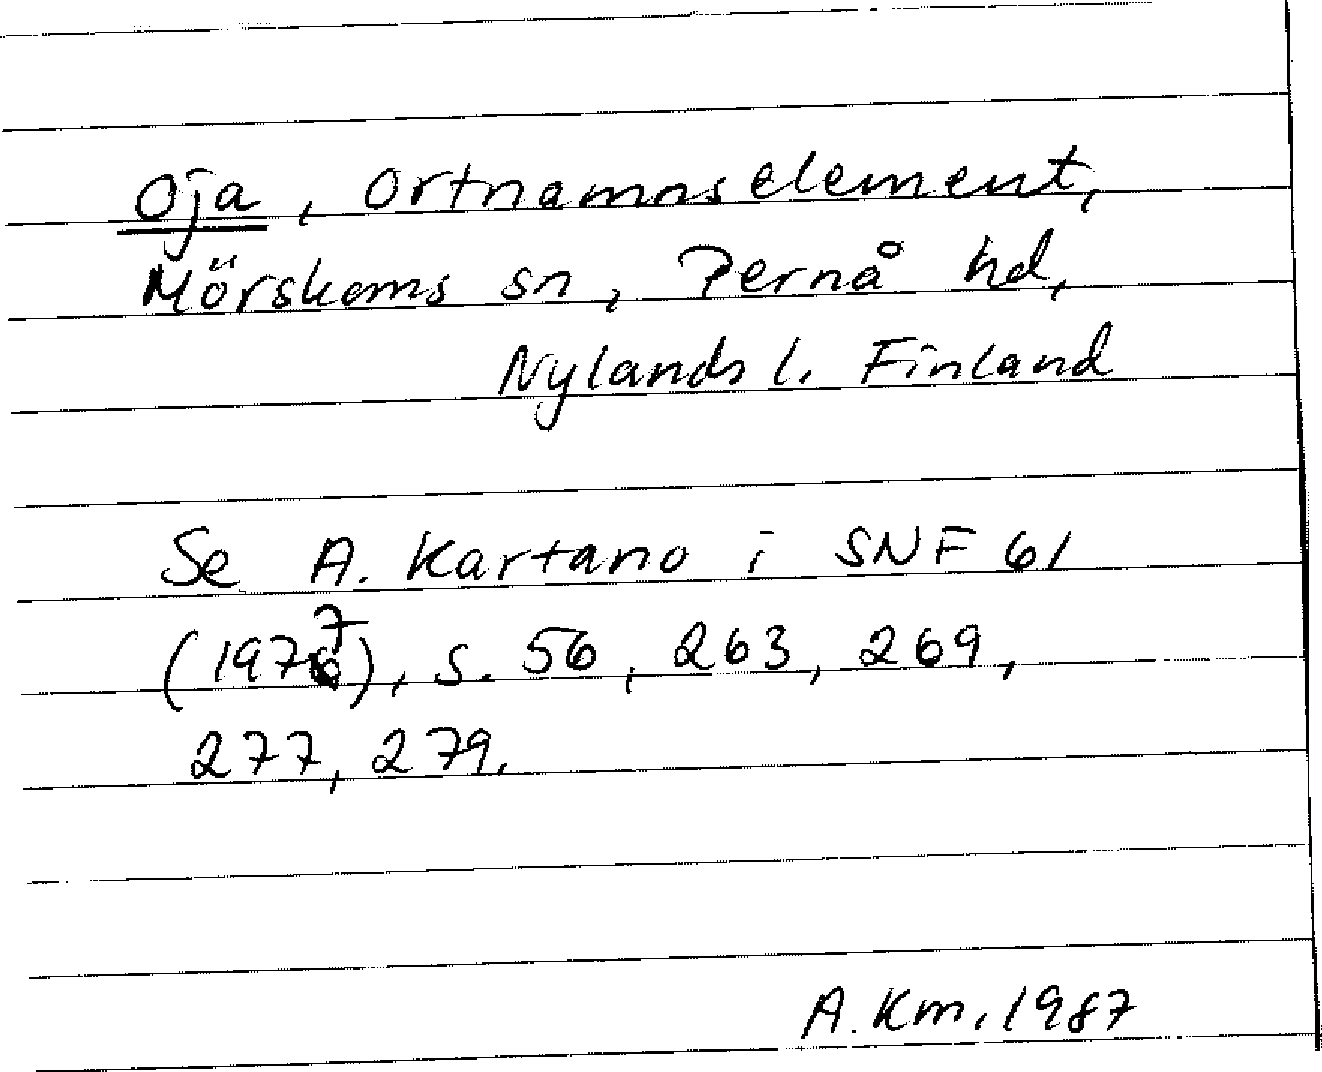 Oja, ortnamnselement,
Mörskoms sn, Pernå hd,
Nylands l. Finland
Se A. Kartano i SNF 61
(1977), s. 56, 263, 269,
277, 279.
A. Km. 1987